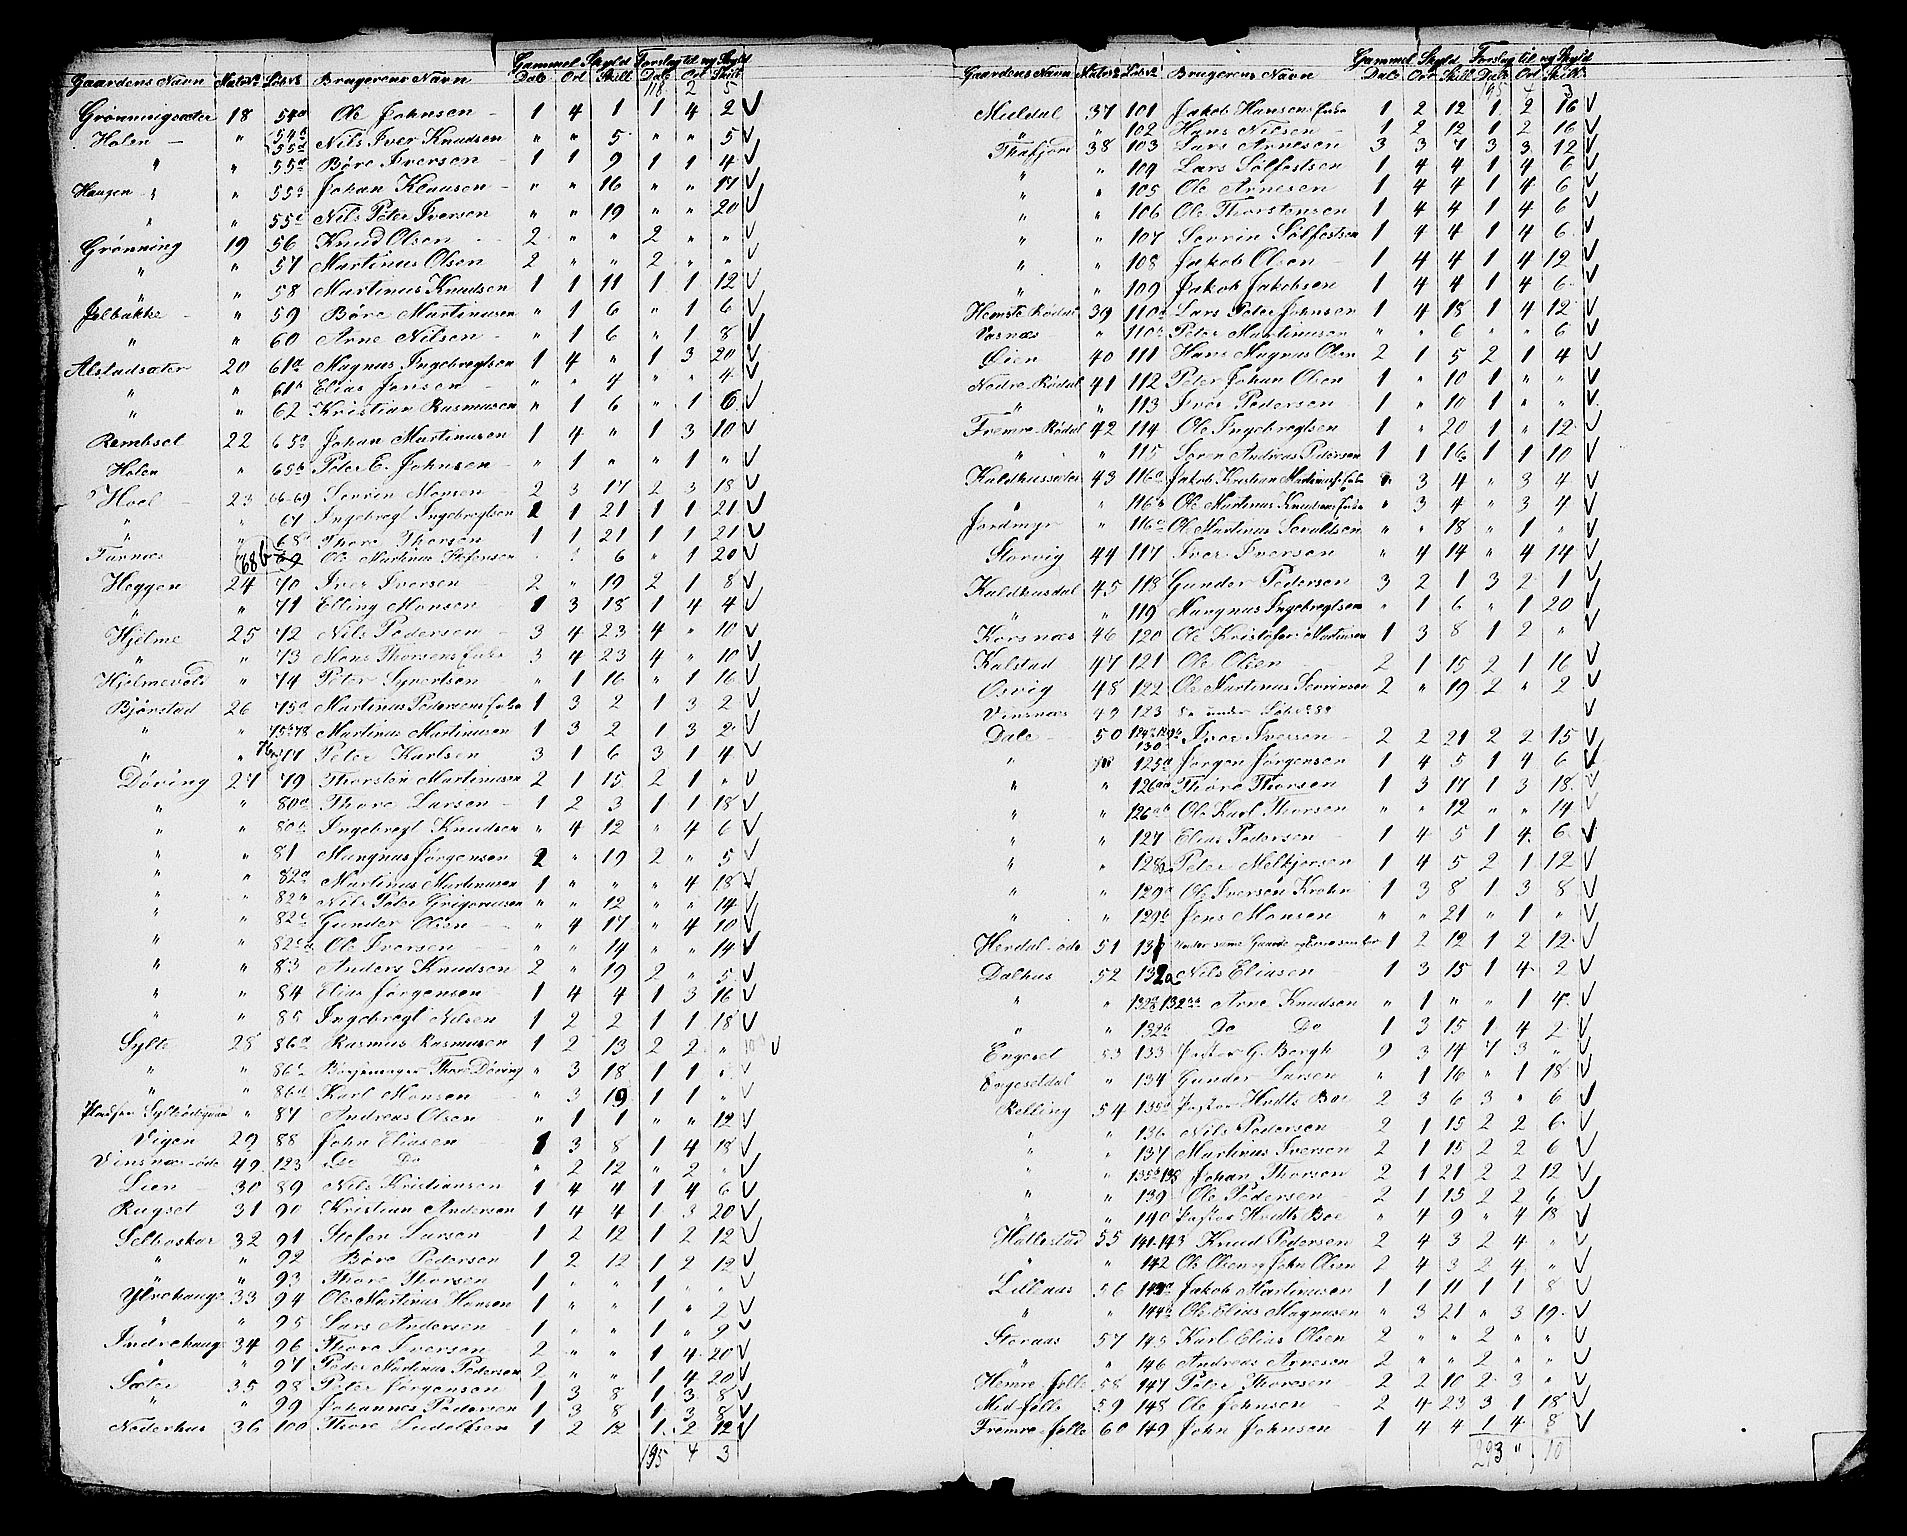 Gaardens Navn Matr№ Løb№ Brugerens Navn Gammel Skyld Forslag til ny Skyld
Dalr Ort Skill Dalr Ort Skill
118 2 5
Grønningsæter 18 54a Ole Johnsen 1 4 1 1 4 2 V
Holen " 54b 55d Nils Iver Knudsen " " 5 " " 5 V
" " 55a Børe Iversen 1 1 9 1 1 4 V
Haugen " " 55b Johan Klausen " " 16 " " 17 V
" " 55c Nils Peter Iversen " " 19 " " 20 V
Grønning 19 56 Knud Olsen 2 " " 2 " " V
" " 57 Martinus Olsen 2 " " 2 " " V
" " 58 Martinus Knudsen 1 1 11 1 1 12 V
Jelbakke " 59 Børe Martinussen " 1 6 " 1 6 V
" " 60 Arne Nilsen " 1 6 " 1 8 V
Alstadsæter 20 61a Magnus Ingebregtsen 1 4 " 1 3 20 V
" " 61b Elias Jensen " " 4 " " 4 V
" " 62 Kristian Rasmussen " 1 6 " 1 6 V
Rembsel 22 65a Johan Martinussen 1 4 " 1 3 10 V
Holen " 65b Peter E. Johnsen " 1 " " 1 " V
Hoel 23 66-69 Sevrin Monsen 2 3 17 2 3 18 V
" " 67 Ingebregt Ingebregtsen 1 1 21 1 1 21 V
" " 68a Thore Thorsen 1 1 21 1 1 21 V
Furnæs 68b Ole Martinus Stefensen 6 " 1 20 V
Heggen 24 70 Iver Iversen 2 " 19 2 1 8 V
" " 71 Elling Monsen 1 3 18 1 4 4 V
Hjelme 25 72 Nils Pedersen 3 4 23 4 " 10 V
" " 73 Mons Thorsens Enke 3 4 23 4 " 10 V
Hjelmevold " 74 Peter Syvertsen " 1 16 " 1 16 V
Bjørstad 26 75a Martinus Pedersens Enke 1 3 2 1 3 2 V
" " 75b 78 Martinus Martinussen 1 3 2 1 3 2 V
" " 76 77 Peter Karlsen 3 1 6 3 1 4 V
Døving 27 79 Thorsten Martinussen 2 1 15 2 1 " V
" " 80a Thore Larsen 1 2 3 1 1 18 V
" " 80b Ingebregt Knudsen " 4 12 " 4 6 V
" " 81 Mangnus Jørgensen 2 " 19 2 " 5 V
" " 82a Martinus Martinussen 1 " " " 4 18 V
" " 82b Nils Peter Grigoriussen " " 12 " " 14 V
" " 82c Gunder Olsen " 4 17 " 4 10 V
" " Ole Iversen " " 14 " " 14 V
" " 83 Anders Knudsen 2 " 19 2 " 5 V
" " 84 Elias Jørgensen 1 4 4 1 3 16 V
" " 85 Ingebregt Nilsen 1 2 2 1 1 18 V
Sylte 28 86a Rasmus Rasmussen 1 2 13 2 2 " V
" " 86c Thore Døving " 3 18 1 1 " V
" " 86d Karl Monsen " 3 19 1 1 " V
" 87 Andreas Olsen " 1 1 " " 12 V
Vigen 29 88 John Eliasen 1 3 8 1 4 18 V
Vinsnæs øde 49 123 Do Do " 2 12 " 2 " V
Lien 30 89 Nils Kristiansen 1 4 4 1 4 6 V
Rugset 31 90 Kristian Andersen 1 4 4 1 3 20 V
Selboskar 32 91 Stefen Larsen 1 2 12 1 2 12 V
" " 92 Børe Pedersen 1 2 12 1 2 12 V
" " 93 Thore Thorsen 1 " " 1 " " V
Ytrehauge 33 94 Ole Martinus Hansen 1 " " 1 " 2 V
" " 95 Lars Andersen 1 " " 1 " 9 V
Indrehauge 34 96 Thore Iversen 2 " " 1 4 20 V
" " 97 Peder Martinus Pedersen 2 " " 1 4 20 V
Sæter 35 98 Peter Jørgensen 1 3 8 1 3 8 V
" " 99 Johannes Pedersen 1 3 8 1 3 8 V
Nederhus 36 100 Thore Ludolfsen 1 2 12 1 2 12 V
195 4 3
Gaardens Navn Matr№ Løb№ Brugerens Navn Gammel Skyld Forslag til ny Skyld
Dalr Ort Skill Dalr Ort Skill
195 4 3
Muldal 37 101 Jakob Hansens Enke 1 2 12 1 2 16 V
" " 102 Hans Nilsen 1 2 12 1 2 16 V
Thafjord 38 103 Lars Arnesen 3 3 7 3 3 12 V
" " 104 Lars Sølfestsen 1 4 4 1 4 6 V
" " 105 Ole Arnesen 1 4 4 1 4 6 V
" " 106 Ole Thorstensen 1 4 4 1 4 6 V
" " 107 Sevrin Sølfestsen 1 4 4 1 4 6 V
" " 108 Jakob Olsen 1 4 4 1 4 12 V
" " 109 Jakob Jakobsen 1 4 4 1 4 6 V
Hemste Rødal 39 110a Lars Peter Johnsen 1 4 18 1 4 12 V
Vasnæs " 110b Peter Martinussen " " 6 " " 6 V
Øien 40 111 Hans Magnus Olsen 2 1 5 2 1 4 V
Nedre Rødal 41 112 Peter Johan Olsen 1 " 10 1 " " V
" " 113 Iver Pedersen 1 " 10 1 " " V
Fremre Rødal 42 114 Ole Ingebregtsen 1 " 20 1 " 12 V
" " 115 Søren Andreas Pedersen 1 1 16 1 1 10 V
Kaldhussæter 43 116a Jakob Kristian Martinus Enke " 3 4 " 3 4 V
" " 116b Ole Martinus Knudsens Enke " 3 4 " 3 4 V
Jordmyr " 116c Ole Martinus Sevaldsen " " 18 " 1 " V
Storvig 44 117 Iver Iversen " 4 14 " 4 14 V
Kaldhusdal 45 118 Gunder Pedersen 3 2 1 3 2 1 V
" " 119 Mangnus Ingebregtsen " 1 6 " 1 20 V
Korsnæs 46 120 Ole Kristofer Madsen 1 3 8 1 2 " V
Kalstad 47 121 Ole Olsen 2 1 15 2 1 16 V
Osvig 48 122 Ole Martinus Sevrinsen 2 " 19 2 " 2 V
Vinsnæs 49 123 Se under Løb№ 88
Dale 50 130 Iver Iversen 2 2 21 2 2 15 V
" " 125a Jørgen Jørgensen 1 4 5 1 4 6 V
" " 126aa Thore Thorsen 1 3 17 1 3 18 V
" " 126ab Ole Karl Thorsen " " 12 " " 14 V
" " 127 Elias Pedersen 1 4 5 1 4 6 V
" " 128a Peter Melkjorsen 1 4 5 2 1 12 V
" " 129a Ole Iversen Krohn 1 3 8 1 3 8 V
" " 129b Jens Monsen " " 21 " 1 " V
Herdal øde 51 131 1 2 12 1 2 12 V
Dalhus 52 132a Nils Eliasen 1 3 15 1 4 2 V
" " Arne Knudsen " 1 " " 1 4 V
" " 132b Do Do 1 3 15 1 4 2 V
Engeset 53 133 Pastor G. Bergh 9 3 14 7 3 " V
Engesetdal " 134 Gunder Larsen " 1 16 " 1 18 V
Relling 54 135a Pastor Hvidts Boe 2 3 6 3 " 6 V
" " 136 Nils Pedersen 2 1 15 2 2 6 V
" " 137 Martinus Iversen 2 1 15 2 2 6 V
" " 135b 138 Johan Thorsen 2 1 21 2 2 12 V
" " 139 Ole Pedersen 2 1 15 2 2 6 V
" " 140 Pastor Hvidts Boe " 4 9 " 4 18 V
Hallestad 55 141-143 Knud Pedersen 2 4 3 2 4 " V
" " 142 Ole Olsen og John Olsen 2 4 3 2 4 " V
Lilleaas 56 144a Jakob Martinussen 1 1 11 1 1 8 V
" " 144b Ole Elias Magnusen " 3 21 " 3 19 V
Storaas 57 145 Karl Elias Olsen 2 " " 2 " " V
" " 146 Andreas Arnesen 2 " " 2 " " V
Hemre Jolle 58 147 Peter Thoresen 2 2 16 2 3 " V
Mid-Jolle 59 148 Ole Johnsen 2 4 23 3 1 18 V
Fremre Jolle 60 149 John Johnsen 1 4 4 1 4 8 V
293 " 10